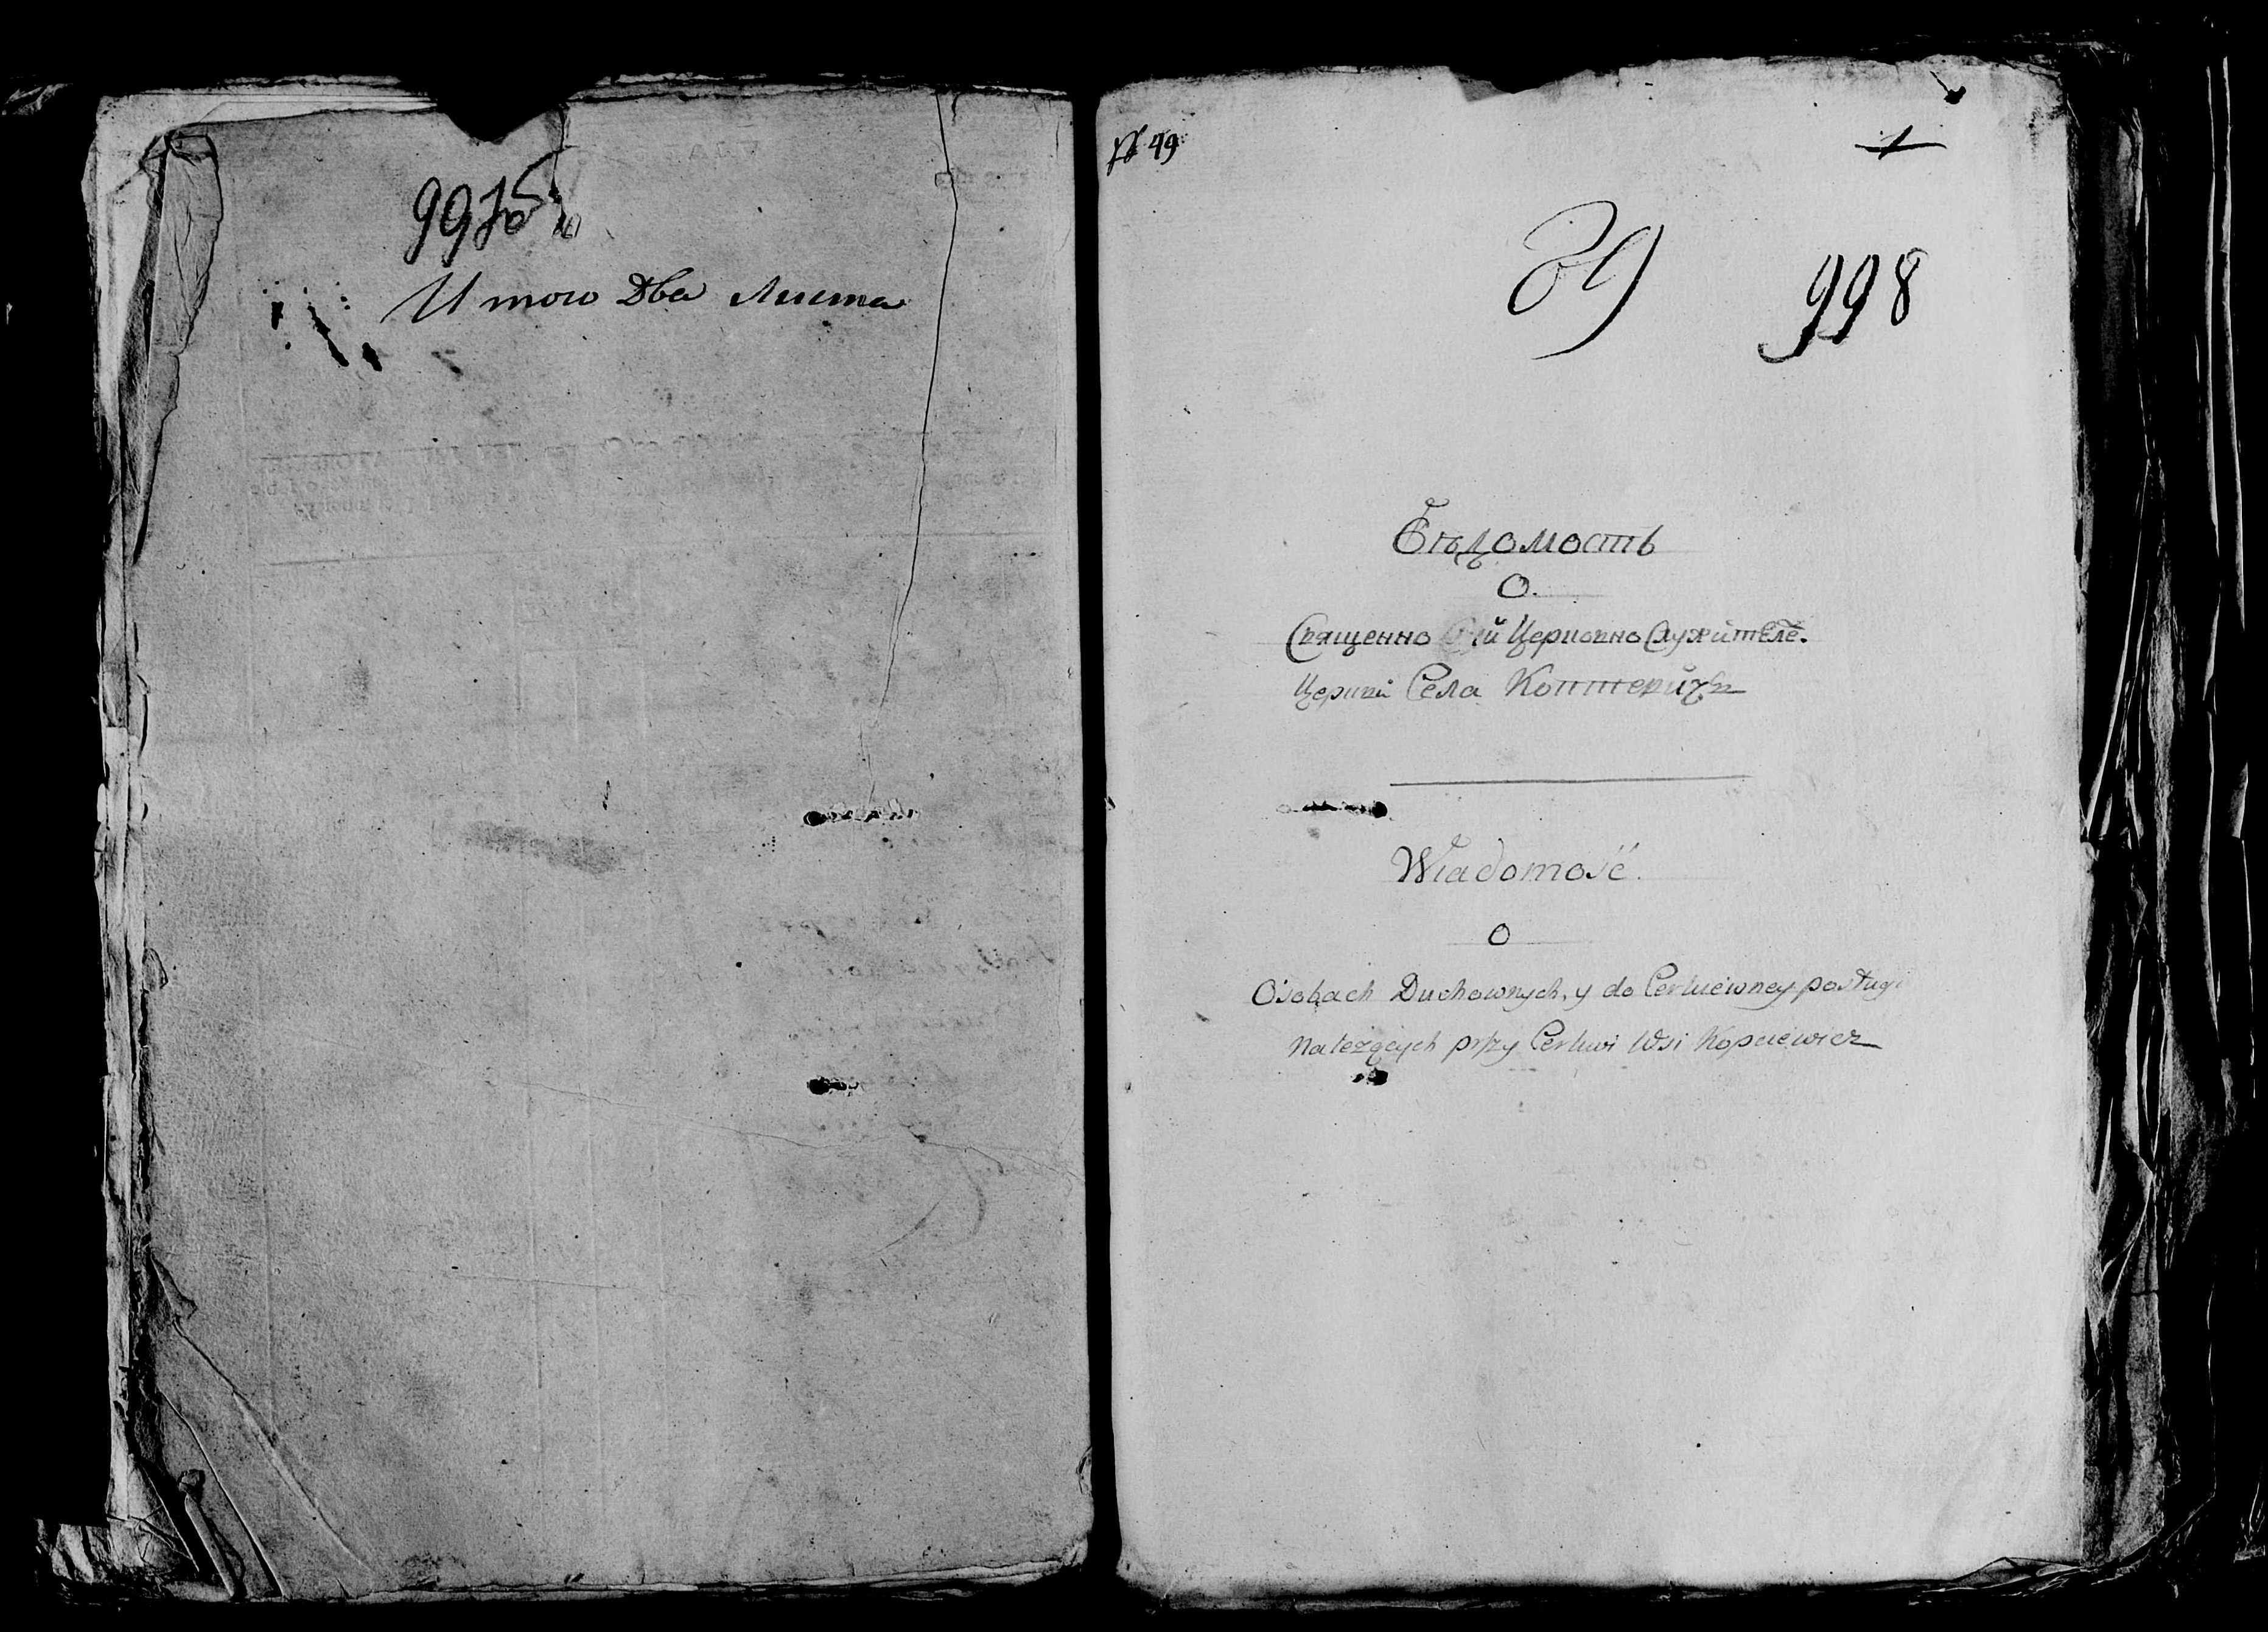 И того Два листа
№ 49
1
89 998
Вѣдомость
О.
Священно й Церковно Служителе.
Церкви Села
Wiadomość.
O
Osobach Duchownych, y do Cerkiewney posługi
należących przy Cerkwi Wsi Kopciewicz